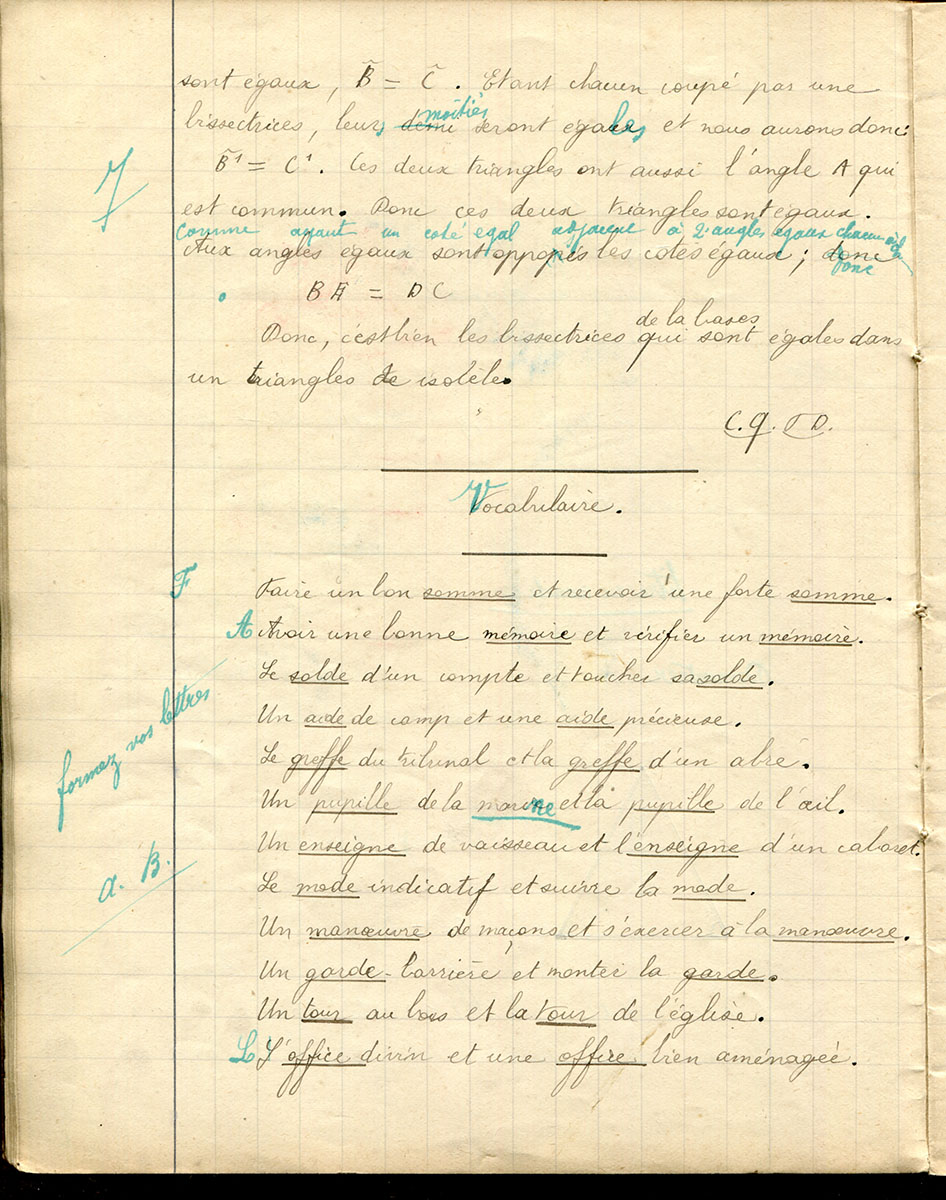 sont égaux, B̂ = Ĉ. Etant chacun coupé par une
moitiés
bissectrices, leurs demi seront égales, et nous aurons donc:
7
B̂¹ = C¹. Ces deux triangles ont aussi l'angle A qui
est commun. Donc ces deux triangles sont égaux.
comme ayant un coté égal adjacent à 2 angles égaux chacun à
Aux angles égaux sont opposés les cotés égaux; donc
donc
BE = DC
de la bases
Donc, c'est bien les bissectrices qui sont égales dans
un triangles de isolèle.
C.Q.F.D.
Vocabulaire.
F
Faire un bon somme et recevoir une forte somme.
A Avoir une bonne mémoire et vérifier un mémoire.
Le solde d'un compte et toucher sa solde.
formez vos lettres
Un aide de camp et une aide précieuse.
Le greffe du tribunal et la greffe d'un abre.
Un pupille de la marine et la pupille de l'œil.
Un enseigne de vaisseau et l'enseigne d'un cabaret.
a. B.
Le mode indicatif et suivre la mode.
Un manœuvre de maçons et s'éxercer à la manœuvre.
Un garde-barrière et monter la garde.
Un tour au bois et la tour de l'église.
L L'office divin et une office bien aménagée.